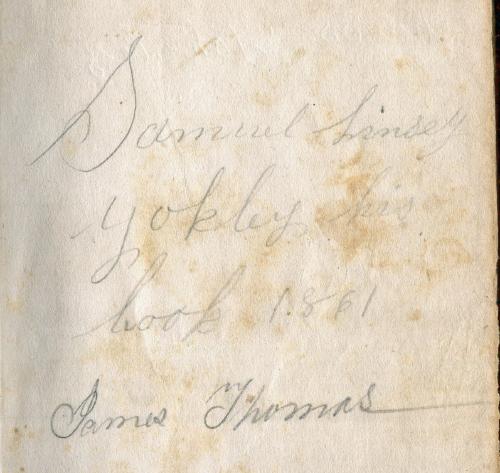 Samuel Linsey
Yokley his
book 1861
James Thomas